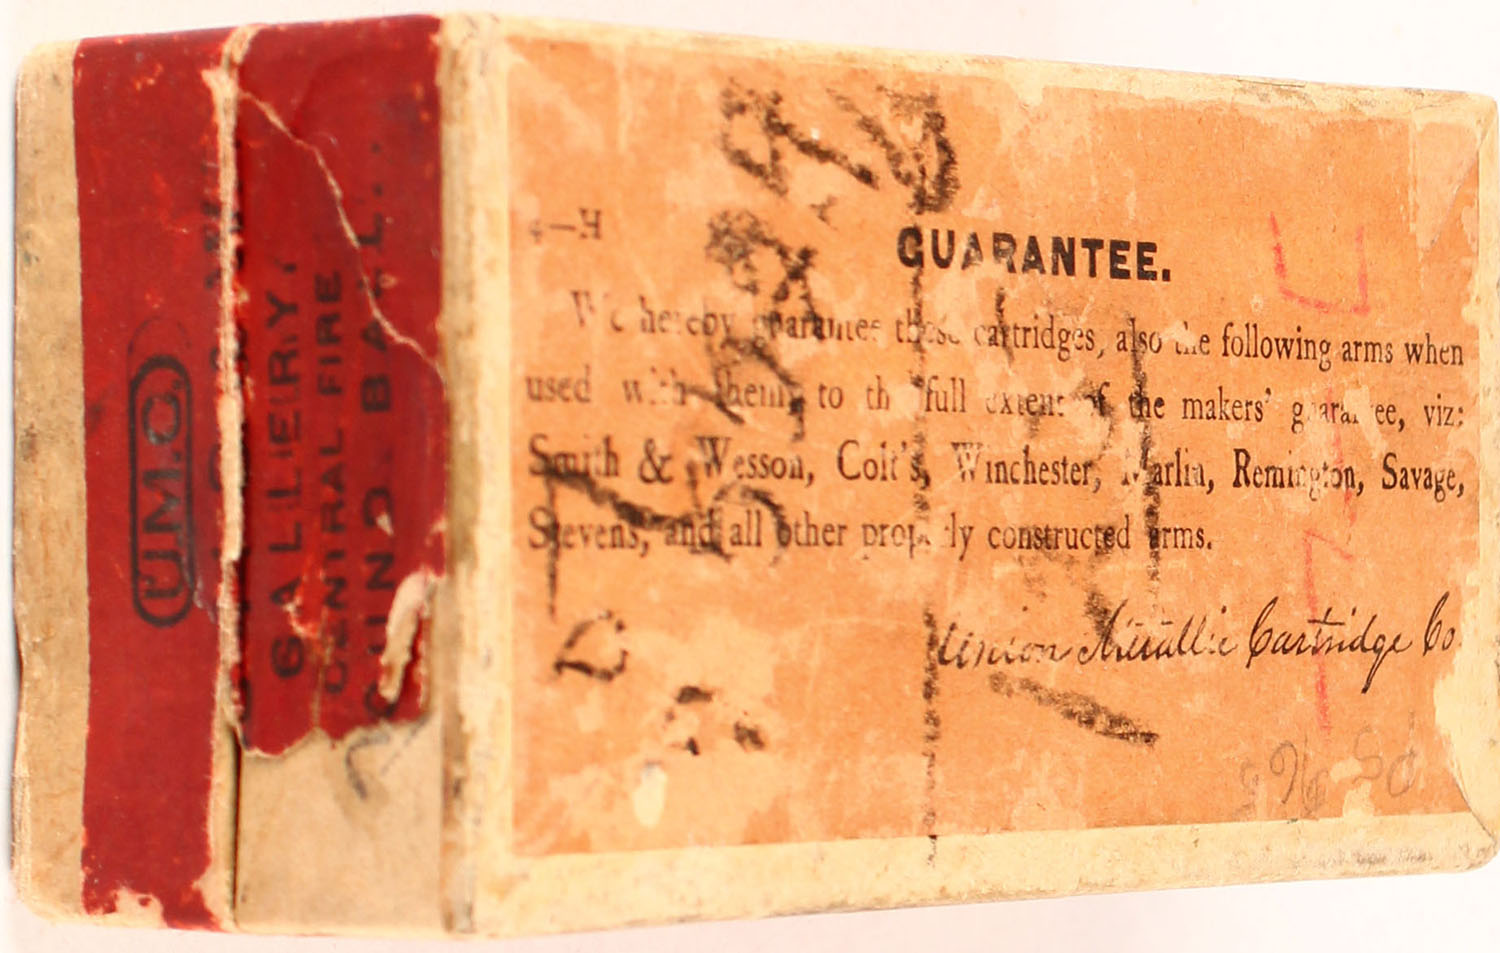 U.M.C.
GALLERY,
CENTRAL FIRE
ROUND BALL.
4—H
GUARANTEE.
We hereby guarantee these cartridges, also the following arms when
used with them, to the full extent of the makers' guarantee, viz:
Smith & Wesson, Colt's, Winchester, Marlin, Remington, Savage,
Stevens, and all other properly constructed arms.
Union Metallic Cartridge Co.